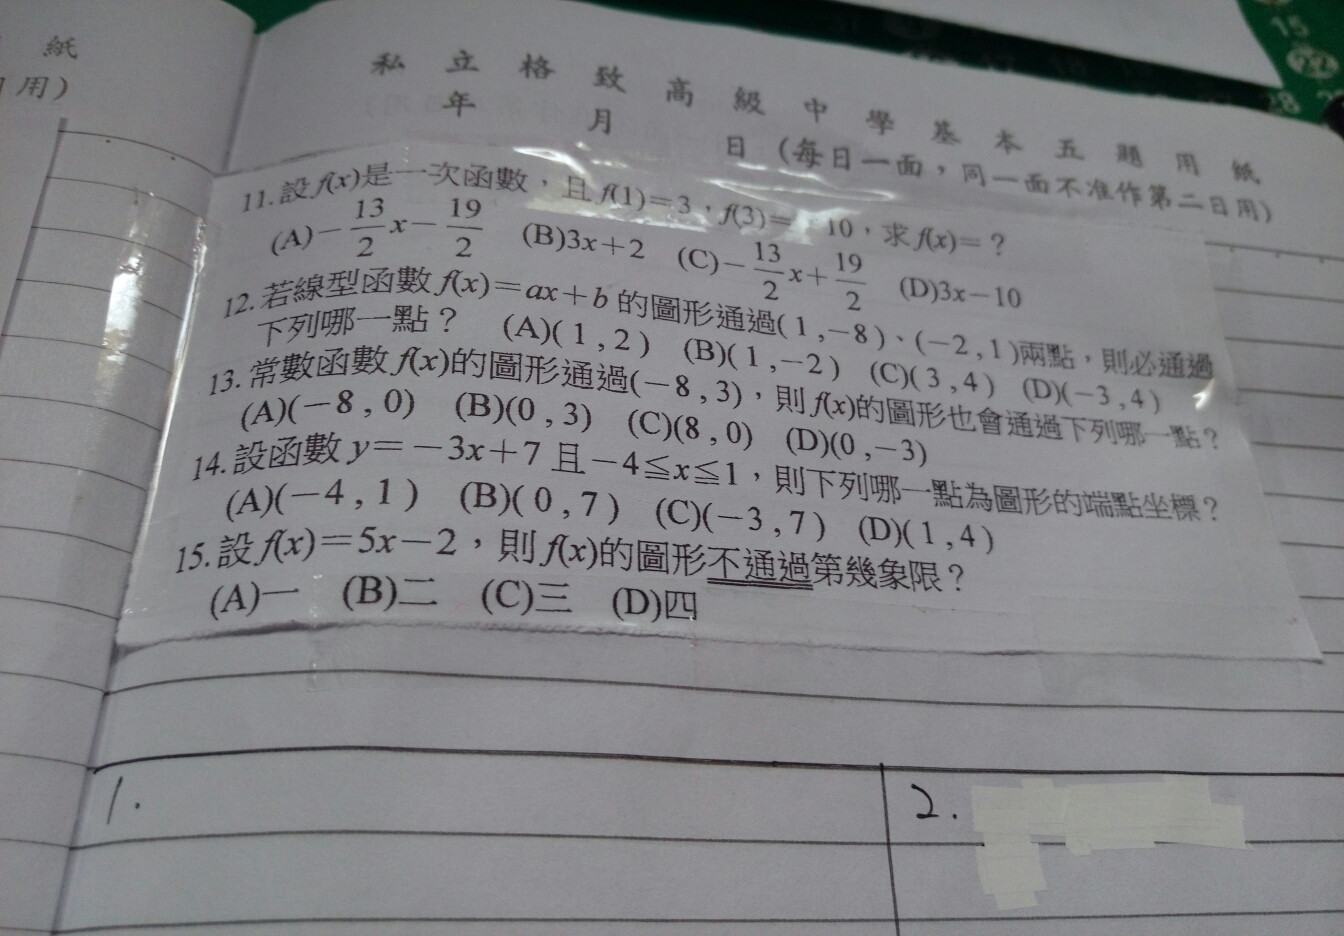 紙
用)
15
22
28
私立格致高級中學基本五題用紙
年 月 日 (每日一面,同一面不准作第二日用)
11.設f(x)是一次函數,且f(1)=3,f(3)= 10,求f(x)=?
(A)−13/2x−19/2 (B)3x+2 (C)−13/2x+19/2 (D)3x−10
12.若線型函數f(x)=ax+b的圖形通過(1,−8)、(−2,1)兩點,則必通過
下列哪一點? (A)(1,2) (B)(1,−2) (C)(3,4) (D)(−3,4)
13.常數函數f(x)的圖形通過(−8,3),則f(x)的圖形也會通過下列哪一點?
(A)(−8,0) (B)(0,3) (C)(8,0) (D)(0,−3)
14.設函數y=−3x+7且−4≦x≦1,則下列哪一點為圖形的端點坐標?
(A)(−4,1) (B)(0,7) (C)(−3,7) (D)(1,4)
15.設f(x)=5x−2,則f(x)的圖形不通過第幾象限?
(A)一 (B)二 (C)三 (D)四
1.
2.